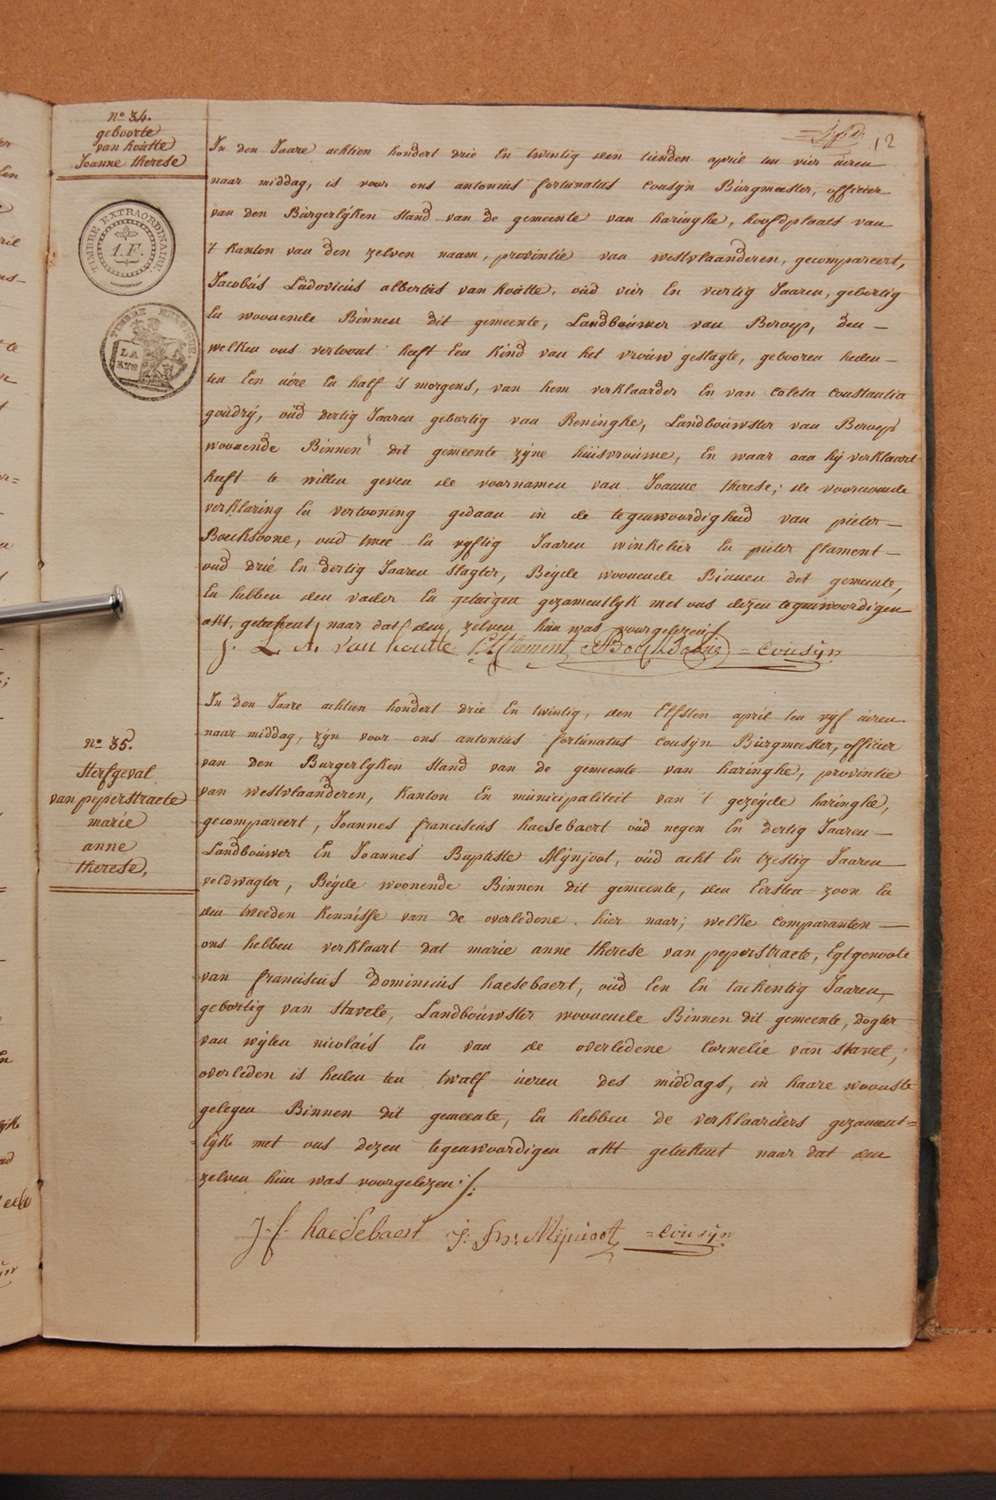 12
n° 34.
geboorte
van houtte
Joanne therese
TIMBRE EXTRAORDINAIRE
1.F.
In den Jaare achtien hondert drie En twintig den tienden april ten vier uren
naar middag, is voor ons antonius fortunatus Cousijn Burgmeester, officier
van den Burgerlijken stand van de gemeente van haringhe, hoofdplaats van
't kanton van den zelven naam, provintie van westvlaanderen, gecompareert,
Jacobus Ludovicus albertus van houtte, oud vier En viertig Jaaren, geboortig
En woonende Binnen dit gemeente, Landbouwer van Beroep, den
welken ons vertoont heeft Een kind van het vrouw geslagte, gebooren heden
ten Een uere En half 's morgens, van hem verklaarder En van Coleta Constantia
goudrij, oud dertig Jaaren geboortig van Reninghe, Landbouwster van Beroep
woonende Binnen dit gemeente zijne huisvrouwe, En waar aan hij verklaart
heeft te willen geven de voornamen van Joanne therese; de voornoemde
verklaring En vertooning gedaan in de tegenwoordigheid van pieter
Boucksoone, oud twee En vyftig Jaaren winkelier En pieter flament
oud drié En dertig Jaaren slagter, Béyde woonende Binnen det gemeente,
En hebben den vader En getuigen gezamentlyk met ons dezen tegenwoordigen
akt, geteekent naar dat den zelven hun was voorgelezen
J. L. A. Van houtte P. Flament Boucksoone = Cousijn
n° 35.
Sterfgeval
van peperstraete
marie
anne
therese,
In den Jaare achtien hondert drie En twintig, den Elfsten april ten vyf uren
naar middag, zyn voor ons antonius fortunatus Cousijn Burgmeester, officier
van den Burgerlyken stand van de gemeente van haringhe, provintie
van westvlaanderen, Kanton En municipaliteit van 't gezeyde haringhe,
gecompareert, Joannes franciscus haesebaert oud negen En dertig Jaaren
Landbouwer En Joannes Baptiste Mijnjoot, oud acht En tzestig Jaaren
veldwagter, Béyde woonende Binnen dit gemeente, den Eersten zoon En
den tweeden Kennisse van de overledene hier naar; welke comparanten
ons hebben verklaart dat marie anne therese van peperstraete, Egtgenoote
van franciscus Dominicus haesebaert, oud Een En tachentig Jaaren,
geboortig van Stavele, Landbouwster woonende Binnen dit gemeente, dogter
van wylen nicolais En van de overledene Cornelie van Stavel,
overleden is heden ten twalf ueren des middags, in haare woonste
gelegen Binnen dit gemeente, En hebben de verklaarders gezament=
lyke met ons dezen tegenwoordigen akt geteekent naar dat den
zelven hun was voorgelezen
J. f. haeSebaert J: Bte Mijnjoot = Cousijn